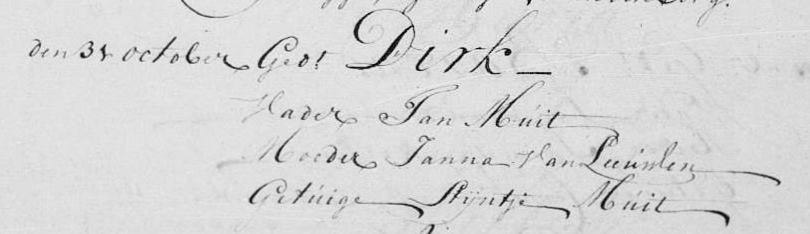 den 31 october Gedt Dirk
Vader Jan Muit
Moeder Janna Van Leeuwen
Getuige Stijntje Muit